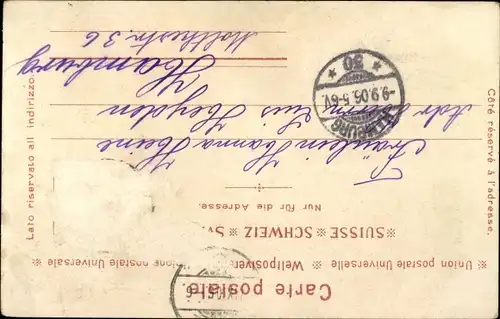 Carte postale.
Union postale universelle ✱ Weltpostverein ✱ Unione postale universale
✱ SUISSE ✱ SCHWEIZ ✱
Nur für die Adresse.
Côté réservé à l'adresse.
Lato riservato all indirizzo.
Fräulein Hanna Heine
Adr Herrn Luis Heyden
Hamburg
Moltkestr. 36
HAMBURG
-9.9.06. 5-6V.
✱ 30 ✱